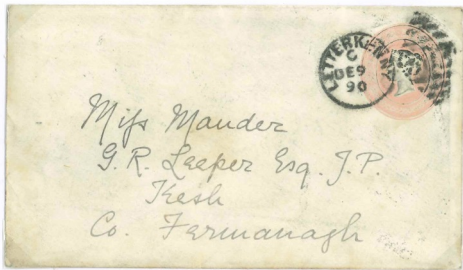 LETTERKENNY
C
DE 9
90
Miſs Mander
G. R. Leeper Esq. J. P.
Kesh
Co. Fermanagh